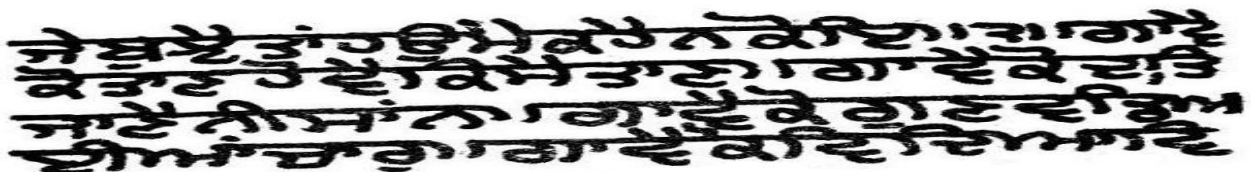 ਜੇ ਬੁਝੈ ਤਾਂ ਹਉਂਮੈ ਕਹੇ ਨ ਕੋਇ।੨।ਗਾਵੈ
ਕੋ ਤਾਣ ਹੋਵੈ ਕਿਸੇ ਤਾਣ।ਗਾਵੈ ਕੋ ਦਾਤਿ
ਜਾਣੈ ਨੀਸਾਂਨ।ਗਾਵੈ ਕੋ ਗੁਣ ਵਡਿਆ
ਈਆਂ ਚਾਰ।ਗਾਵੈ ਕੋ ਵਿਦਿਆ ਵਿ